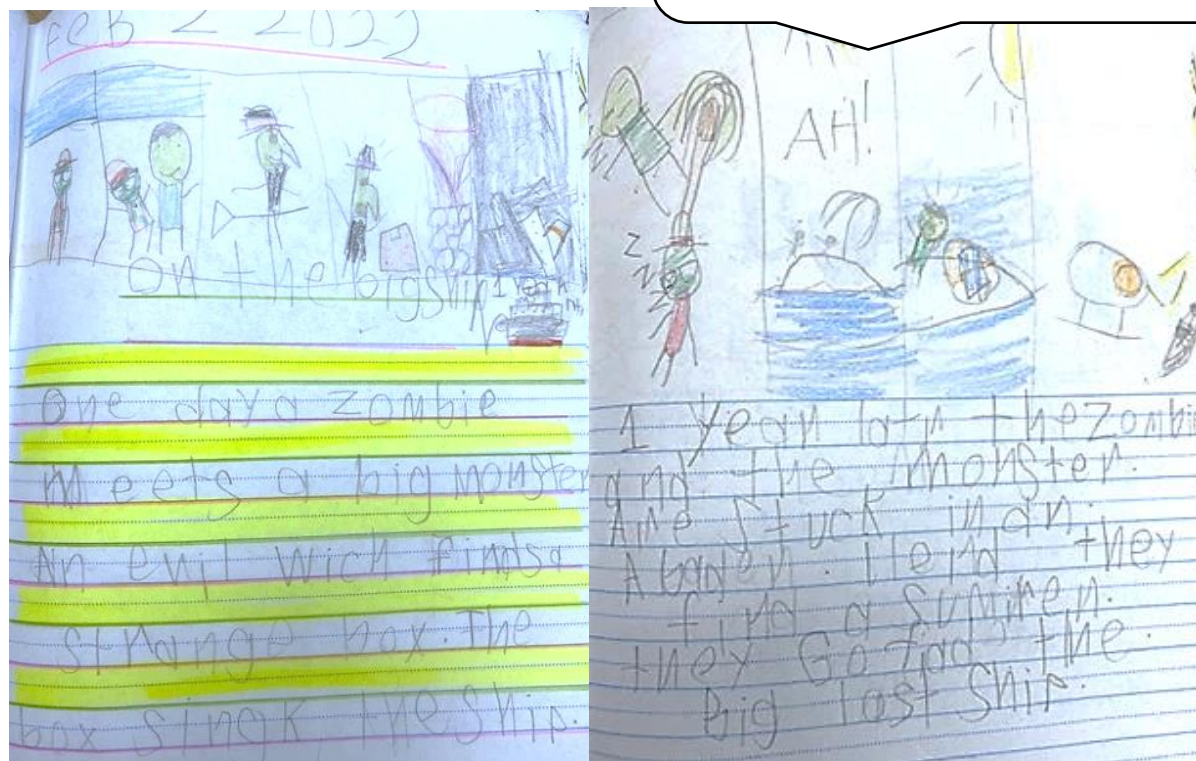 FEB 2 2022
On the big ship
One day a zombie
meets a big monster
An evil wich finds a
strange box. The
box singk the ship.
AH!
1 year latr the zombi
and the monster.
Are stuck in an.
Abanden. Ilend they
find a sumiren.
they Go find the
big lost ship.